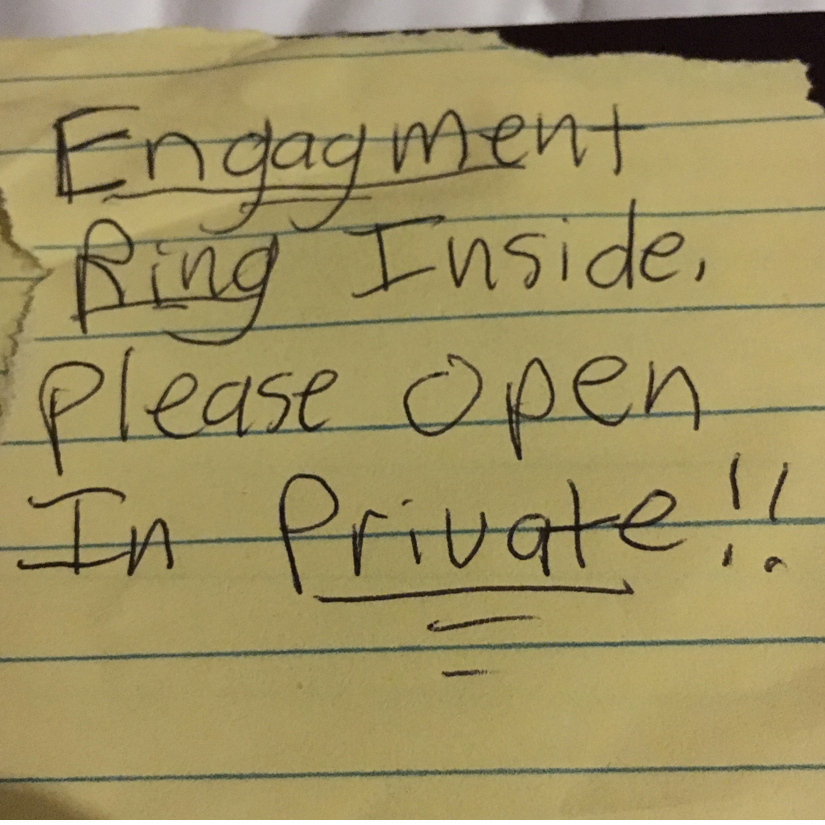 Engagment
Ring Inside,
please open
In Private!!